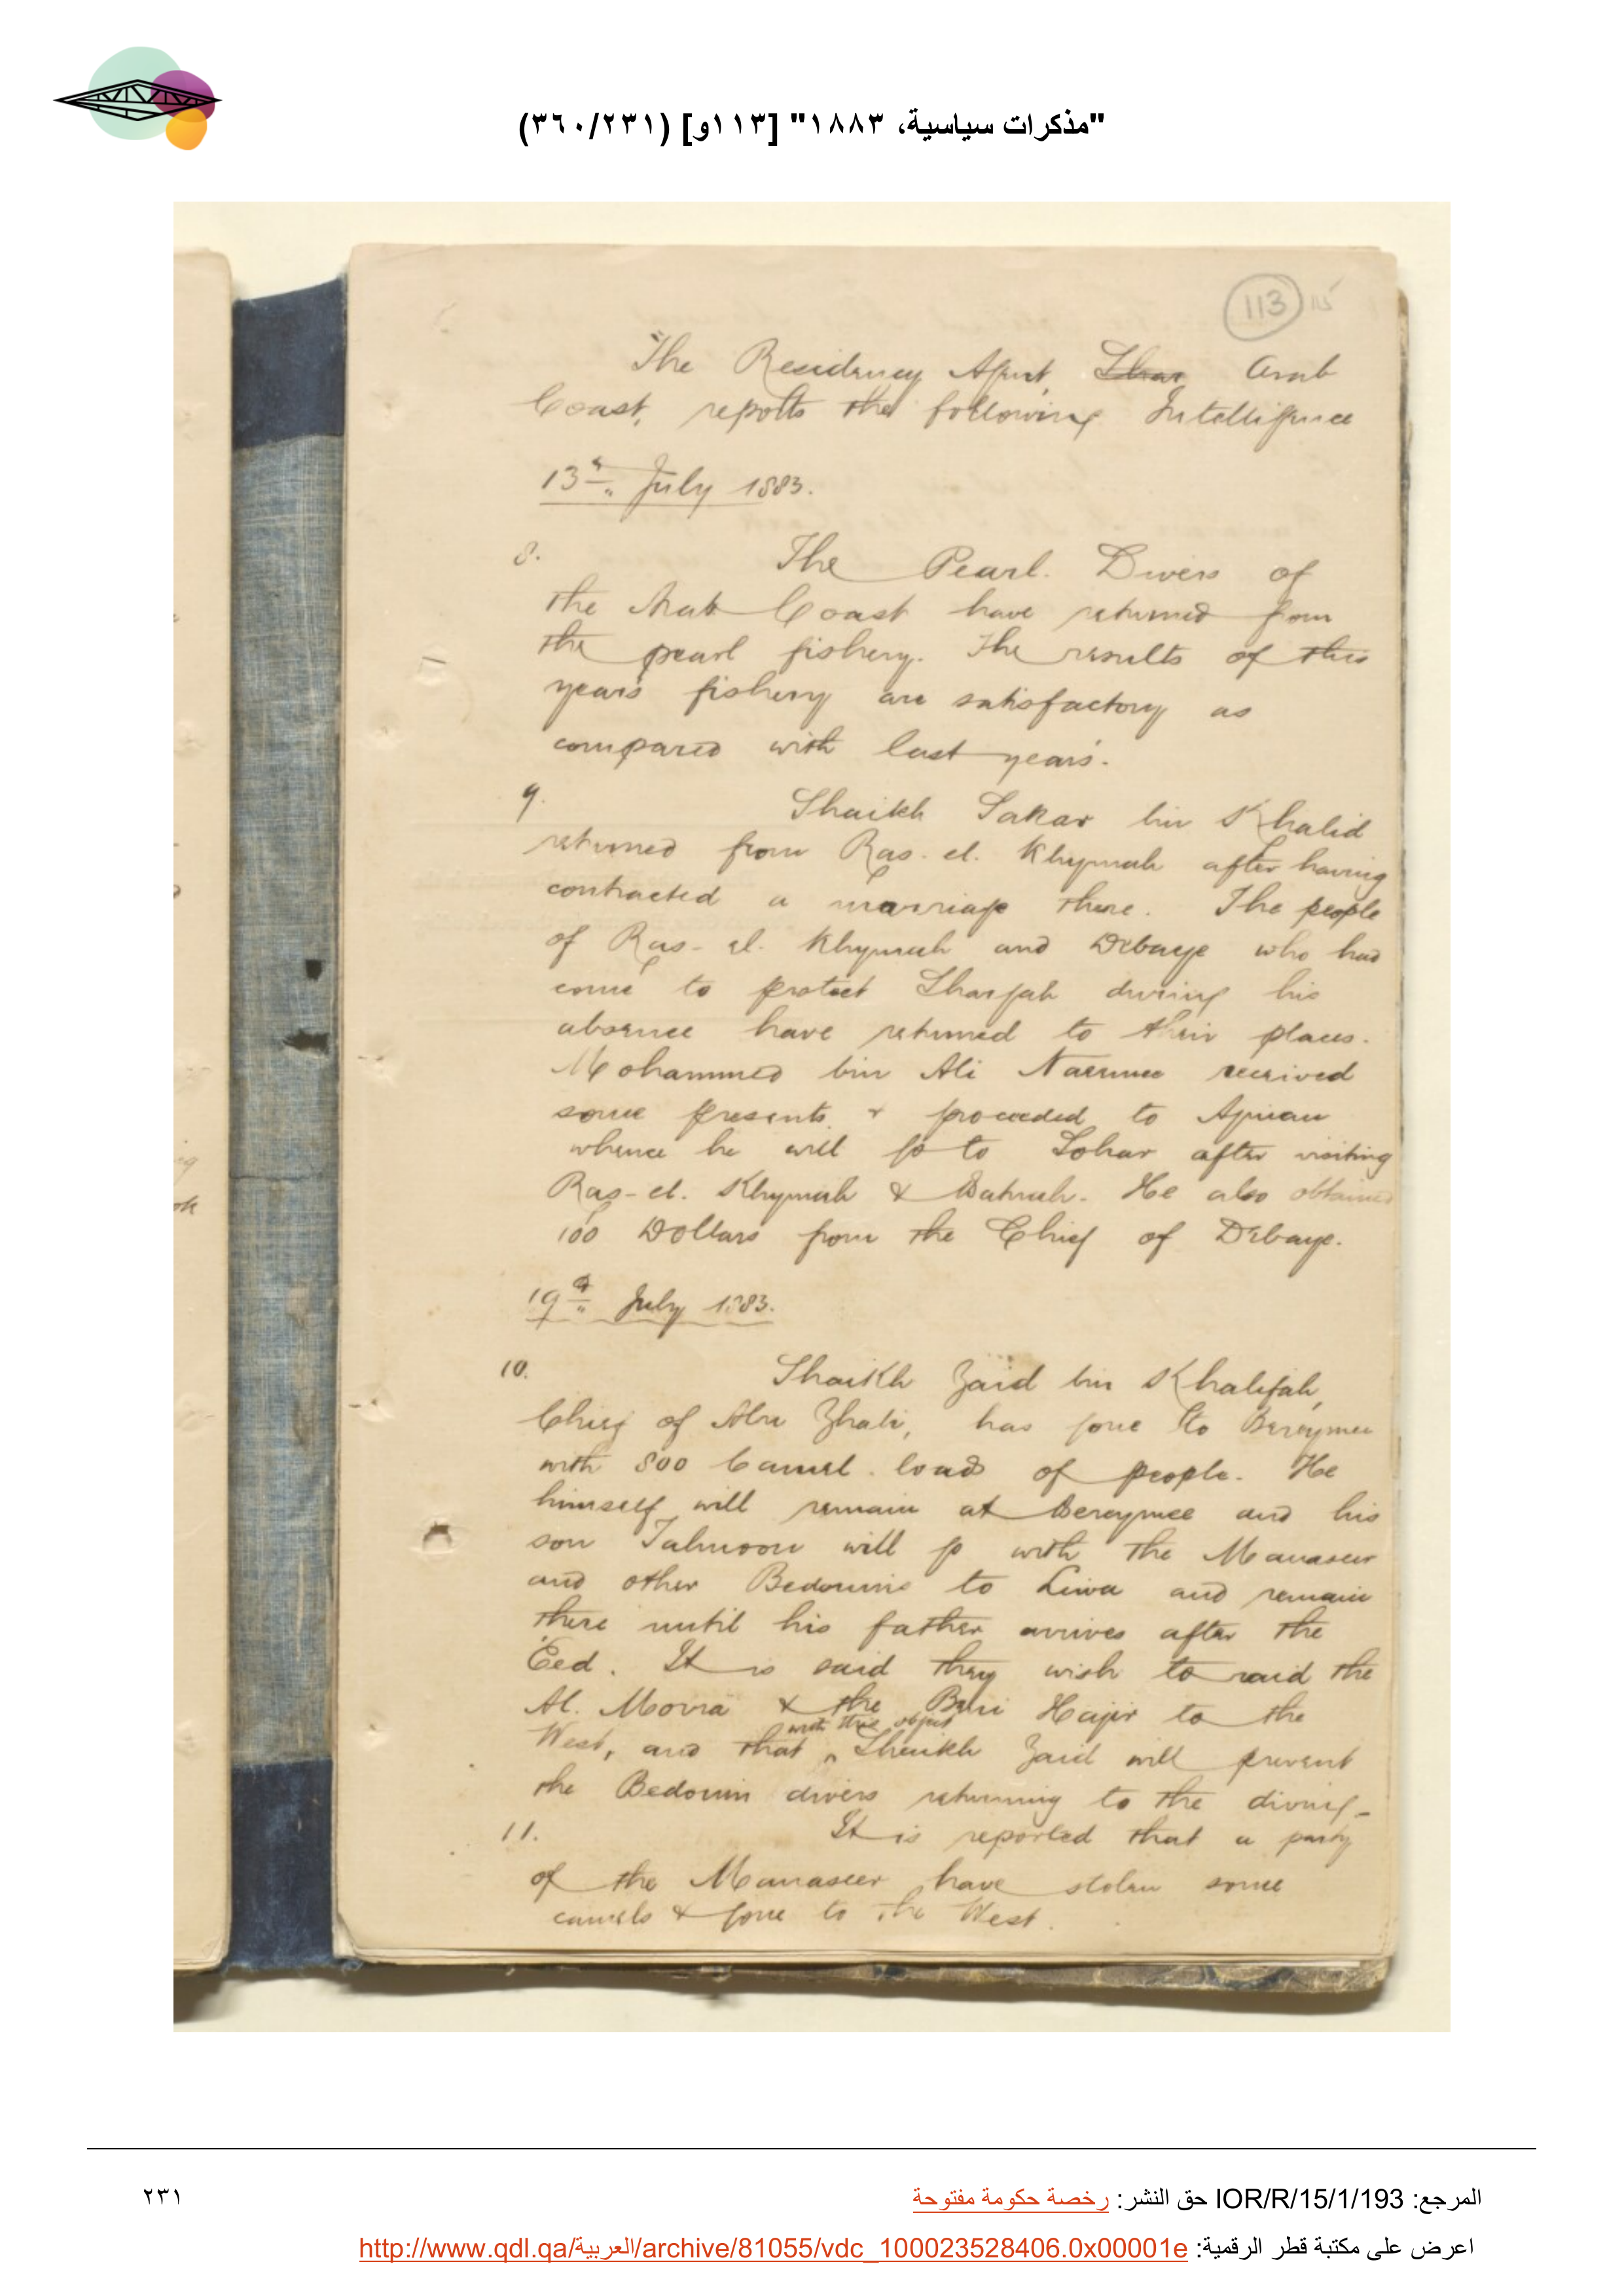 "مذكرات سياسية، ١٨٨٣" [١١٣و] (٣٦٠/٢٣١)
113 115
The Residency Agent, Shar Arab
Coast, reports the following Intelligence
13th July 1883.
8. The Pearl Divers of
the Arab Coast have returned from
the pearl fishery. The results of this
years fishery are satisfactory as
compared with last years.
9. Shaikh Sakar bin Khalid
returned from Ras-el-Khymah after having
contracted a marriage there. The people
of Ras-el-Khymah and Debaye who had
come to protect Shargah during his
absence have returned to their places.
Mohammed bin Ali Naeemee received
some presents & proceeded to Ajman
whence he will go to Sohar after visiting
Ras-el-Khymah & Batnah. He also obtained
100 Dollars from the Chief of Debaye.
19th July 1883.
10. Shaikh Zaid bin Khalifah,
Chief of Abu Zhabi, has gone to Bereymee
with 800 Camel loads of people. He
himself will remain at Bereymee and his
son Tahnoon will go with the Manaseer
and other Bedouins to Liwa and remain
there until his father arrives after the
Eed. It is said they wish to raid the
Al. Morra & the Beni Hajir to the
with this object
West, and that ^ Shaikh Zaid will prevent
the Bedouin divers returning to the diving-
11. It is reported that a party
of the Manaseer have stolen some
camels & gone to the West.
المرجع: IOR/R/15/1/193 حق النشر: رخصة حكومة مفتوحة
٢٣١
اعرض على مكتبة قطر الرقمية: http://www.qdl.qa/العربية/archive/81055/vdc_100023528406.0x00001e